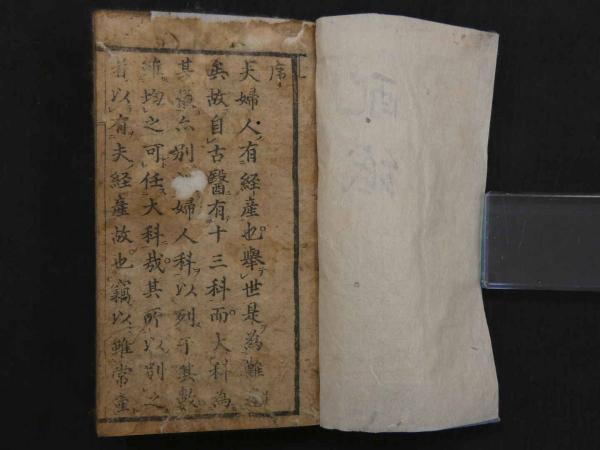 序
夫婦人有経產也舉世是為難
矣故自古醫有十三科而大科為
其最亦別婦人科以列于其數
雖均之可任大科哉其所以別之
者以有夫経產故也竊以雖常產